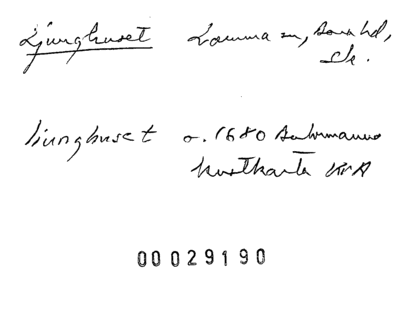 Ljunghuset Lomma sn, Bara hd,
Sk.
Liunghuset o. 1680 Buhrmanns
kustkarta KrA
00029190